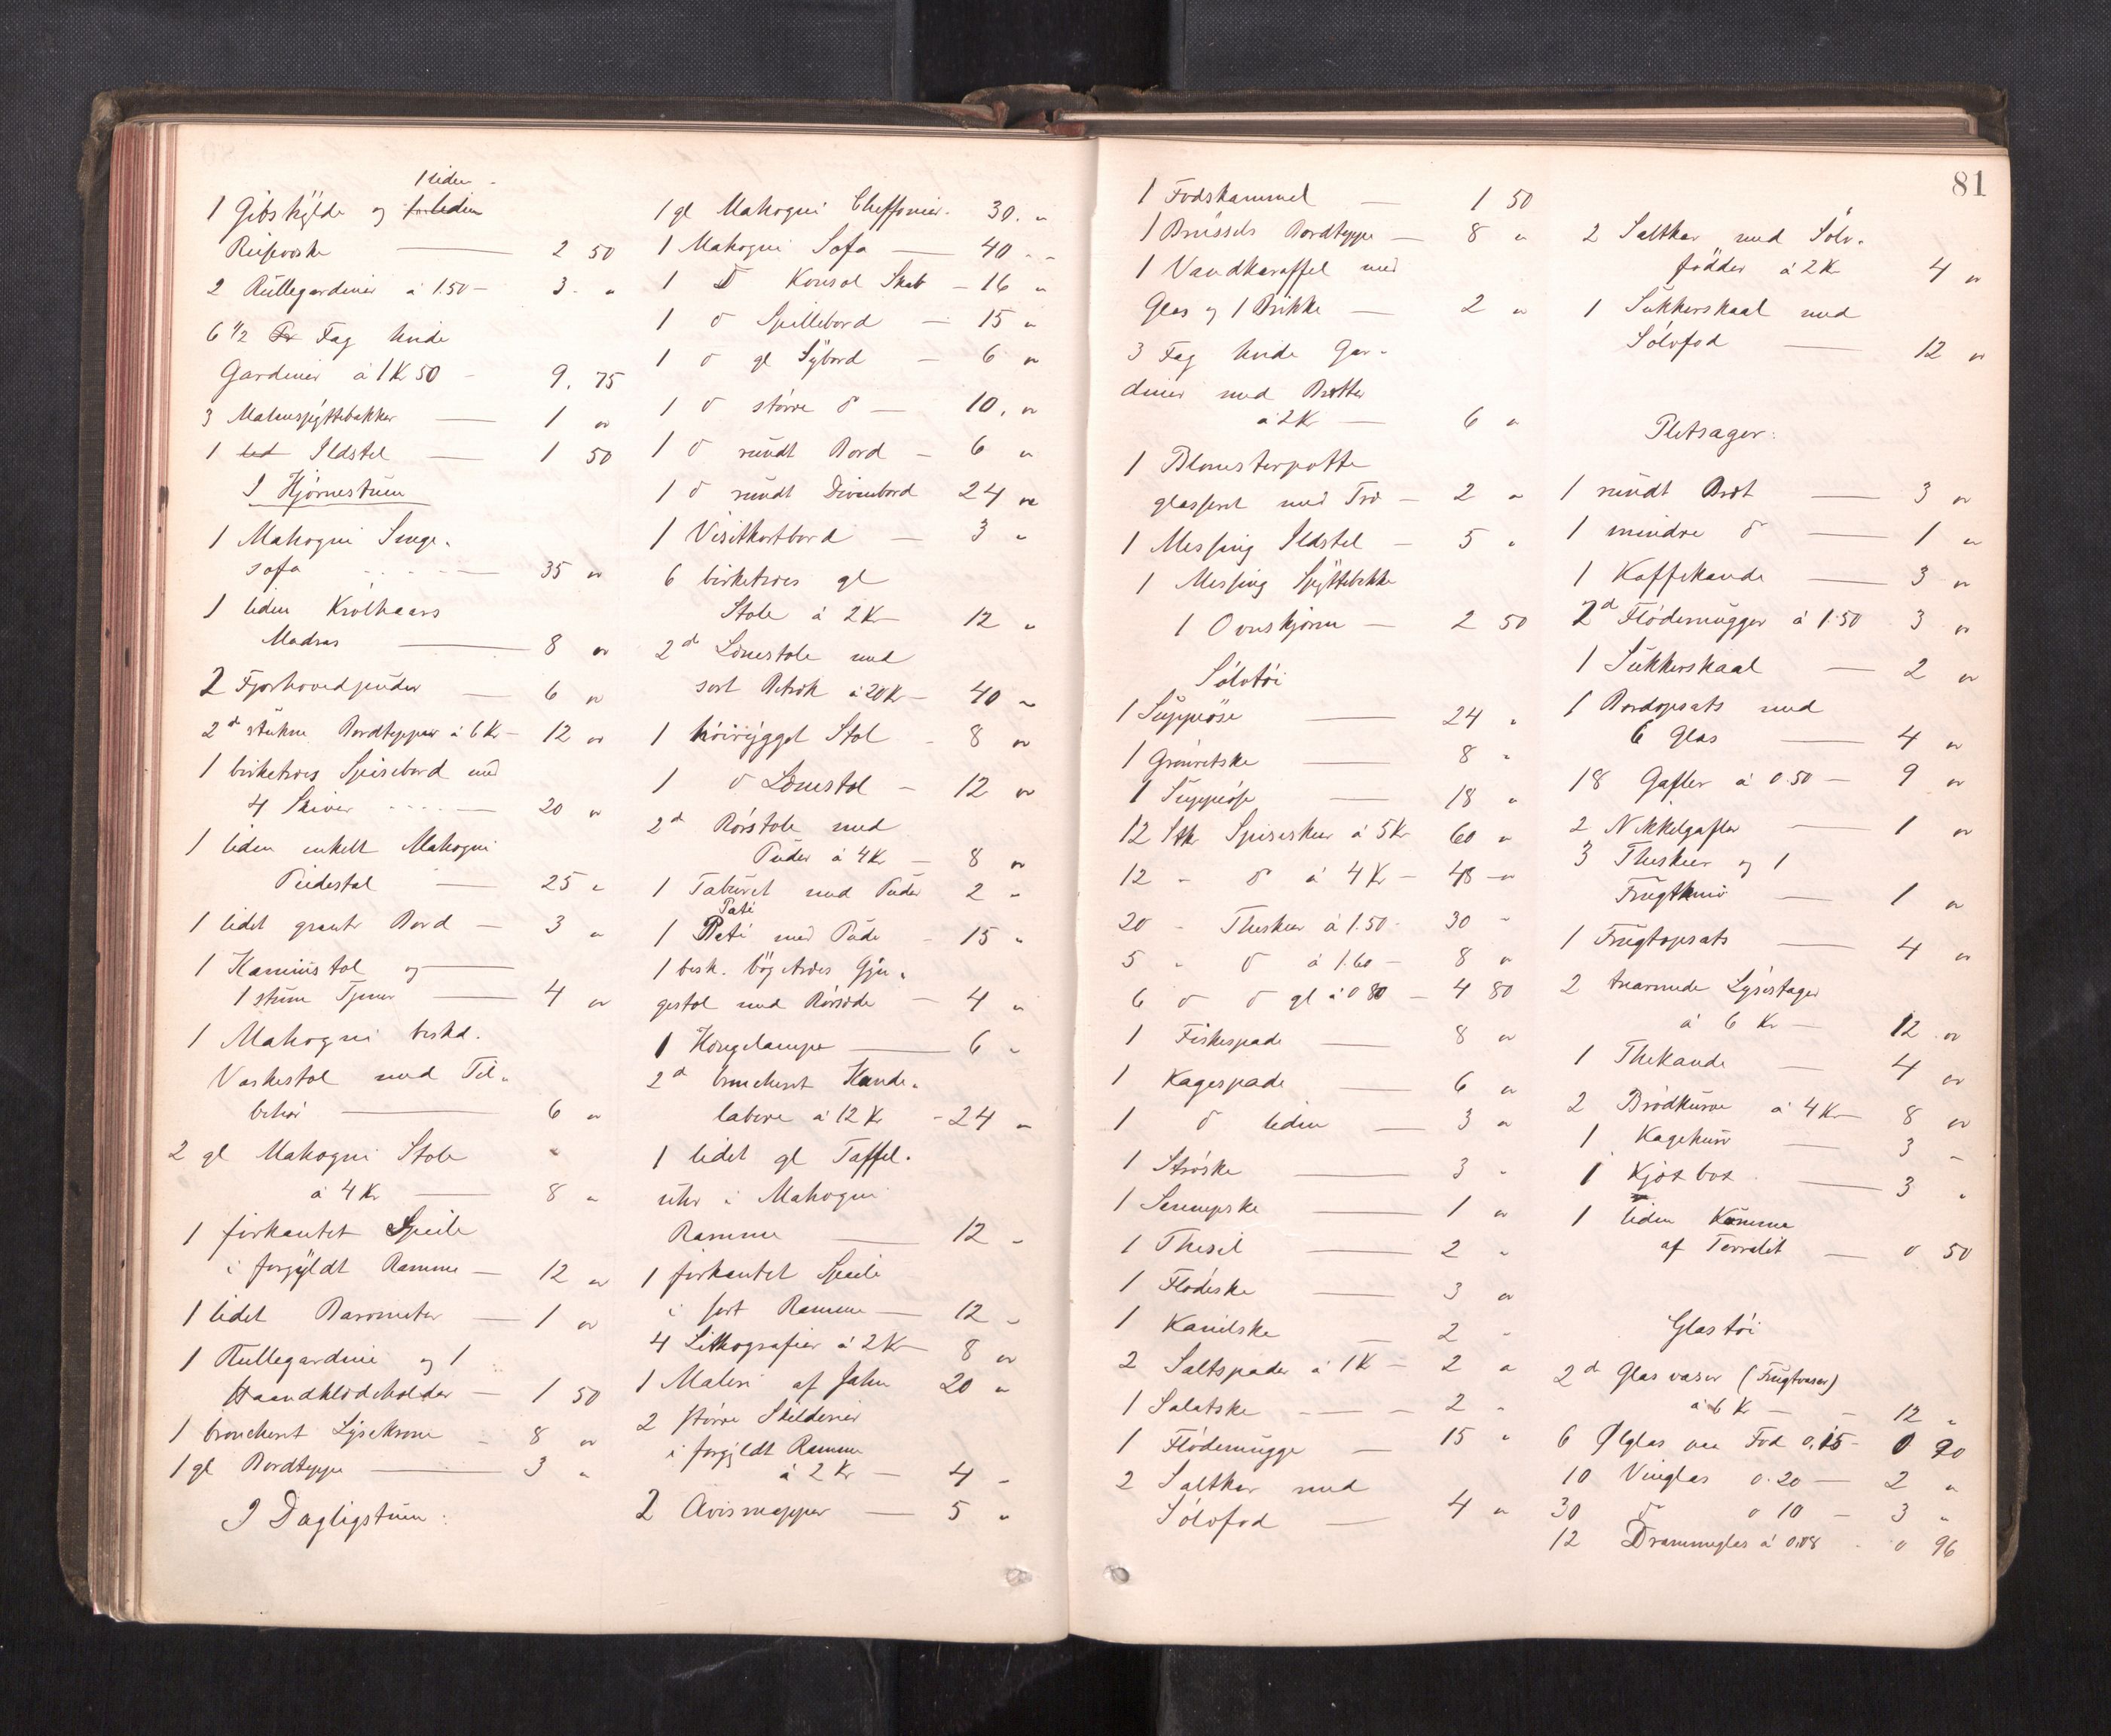 1 liden
1 Gibshylde og forleden
Reiseveske — 2 50
2 Rullegardiner á 1.50 — 3 "
6 1/2 Fag hvide
Gardiner á 1 Kr 50 - 9. 75
3 Malmspyttebakker — 1 "
1 led Ildstel — 1 50
I Hjørnestuen
1 Mahogni Senge-
sofa — 35 "
1 liden Krølhaars
Madras — 8 "
2 Fjærhovedpuder — 6 "
2d stukne Bordtepper á 6 Kr — 12 "
1 birketræes Spisebord med
4 Skiver — 20 "
1 liden enkelt Mahogni
Piedestal — 25 "
1 lidet graat Bord — 3 "
1 Kaminstol og
1 stum Tjener — 4 "
1 Mahogni beskd.
Vaskestol med Til-
behør — 6 "
2 gl Mahogni Stole
á 4 Kr — 8 "
1 firkantet Speile
i forgyldt Ramme — 12 "
1 lidet Barometer — 1 "
1 Rullegardine og 1
Haandklædeholder — 1 50
1 broncheret Lysekrone - 8 "
1 gl Bordteppe — 3 "
I Dagligstuen:
1 gl Mahogni Cheffonier. 30. "
1 Mahogni Sofa — 40 "
1 D Konsol Skab — 16 "
1 d Spillebord — 15 "
1 d gl Sybord — 6 "
1 d større d — 10. "
1 d rundt Bord — 6 "
1 d rundt Divanbord 24 "
1 Visitkortbord — 3 "
6 birketræes gl
Stole á 2 Kr 12 "
2d Lænestole med
sort Betræk á 20 Kr — 40 "
1 høirygget Stol - 8 "
1 d Lænestol — 12 "
2d Rørstole med
Puder á 4 Kr — 8 "
1 Taburet med Puder 2 "
Paté
1 Paté med Pude - 15 "
1 besk. bøgetræes Gyn-
gestol med Rørsæde — 4 "
1 Hængelampe — 6 "
2d broncheret Kande-
labere á 12 Kr - 24 "
1 lidet gl Taffel-
uhr i Mahogni
Ramme — 12 "
1 firkantet Speile
i sort Ramme — 12 "
4 Lithografier á 2 Kr 8 "
1 Maleri af Jahn 20 "
2 større Skilderier
i forgyldt Ramme
á 2 Kr — 4 "
2 Avismapper — 5 "
81
1 Fodskammel — 1 50
1 Brüssels Bordteppe — 8 "
1 Vandkaraffel med
Glas og 1 Brikke — 2 "
3 Fag hvide Gar-
diner med Bretter
á 2 Kr — 6 "
1 Blomsterpotte
glasseret med Træ — 2 "
1 Messing Ildstel — 5 "
1 Messing Spyttebakke
1 Ovnskjærm — 2 50
Sølvtøi
1 Suppeøse — 24 "
1 Grønretske — 8 "
1 Suppeøse — 18 "
12 Stk Spiseskeer á 5 Kr 60 "
12 - d á 4 Kr — 48 "
20 - Theskeer á 1.50 - 30 "
5 - d á 1.60 — 8 "
6 d d gl á 0 80 — 4 80
1 Fiskespade — 8 "
1 Kagespade — 6 "
1 d liden — 3 "
1 Strøske — 3 "
1 Senepske — 1 "
1 Thesil — 2 "
1 Flødeske — 3 "
1 Kanelske — 2 "
2 Saltspader á 1 K — 2 "
1 Salatske — 2 "
1 Flødemugge — 15 "
2 Saltkar med
Sølvfod — 4 "
2 Saltkar med Sølv-
fødder á 2 Kr 4 "
1 Sukkerskaal med
Sølvfod — 12 "
Pletsager:
1 rundt Bret — 3 "
1 mindre d — 1 "
1 Kaffekande — 3 "
2d Flødemugger á 1.50 3 "
1 Sukkerskaal — 2 "
1 Bordopsats med
6 Glas — 4 "
18 Gafler á 0.50 — 9 "
2 Nikkelgafler — 1 "
3 Theskeer og 1
Frugtkniv — 1 "
1 Frugtopsats — 4 "
2 toarmede Lysestager
á 6 Kr — 12 "
1 Thekande — 4 "
2 Brødkurve á 4 Kr — 8 "
1 Kagekurv — 3 "
1 Kjøx box — 3 "
1 liden Kumme
af Terralit — 0 50
Glastøi
2d Glasvaser (Frugtvaser)
á 6 Kr — 12 "
6 Ølglas paa Fod 0.15 - 0 90
10 Vinglas 0.20 — 2 "
30 d 0 10 — 3 "
12 Drammeglas á 0.08 - 0 96